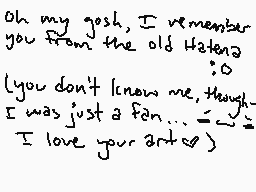 Oh my gosh, I remember
you from the old Hatena
:O
(you don't know me, though-
I was just a fan... =w=
I love your art♡)